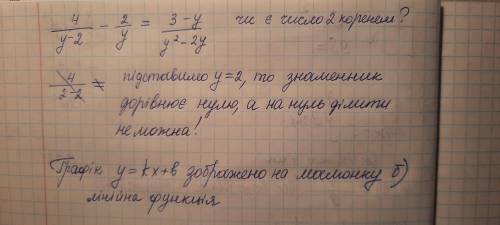 4/(y-2) - 2/y = (3-y)/(y²-2y) чи є число 2 коренем?
4/(2-2) ≠ підставимо y=2, то знаменник
дорівнює нулю, а на нуль ділити
не можна!
Графік y=kx+b зображено на малюнку б)
лінійна функція